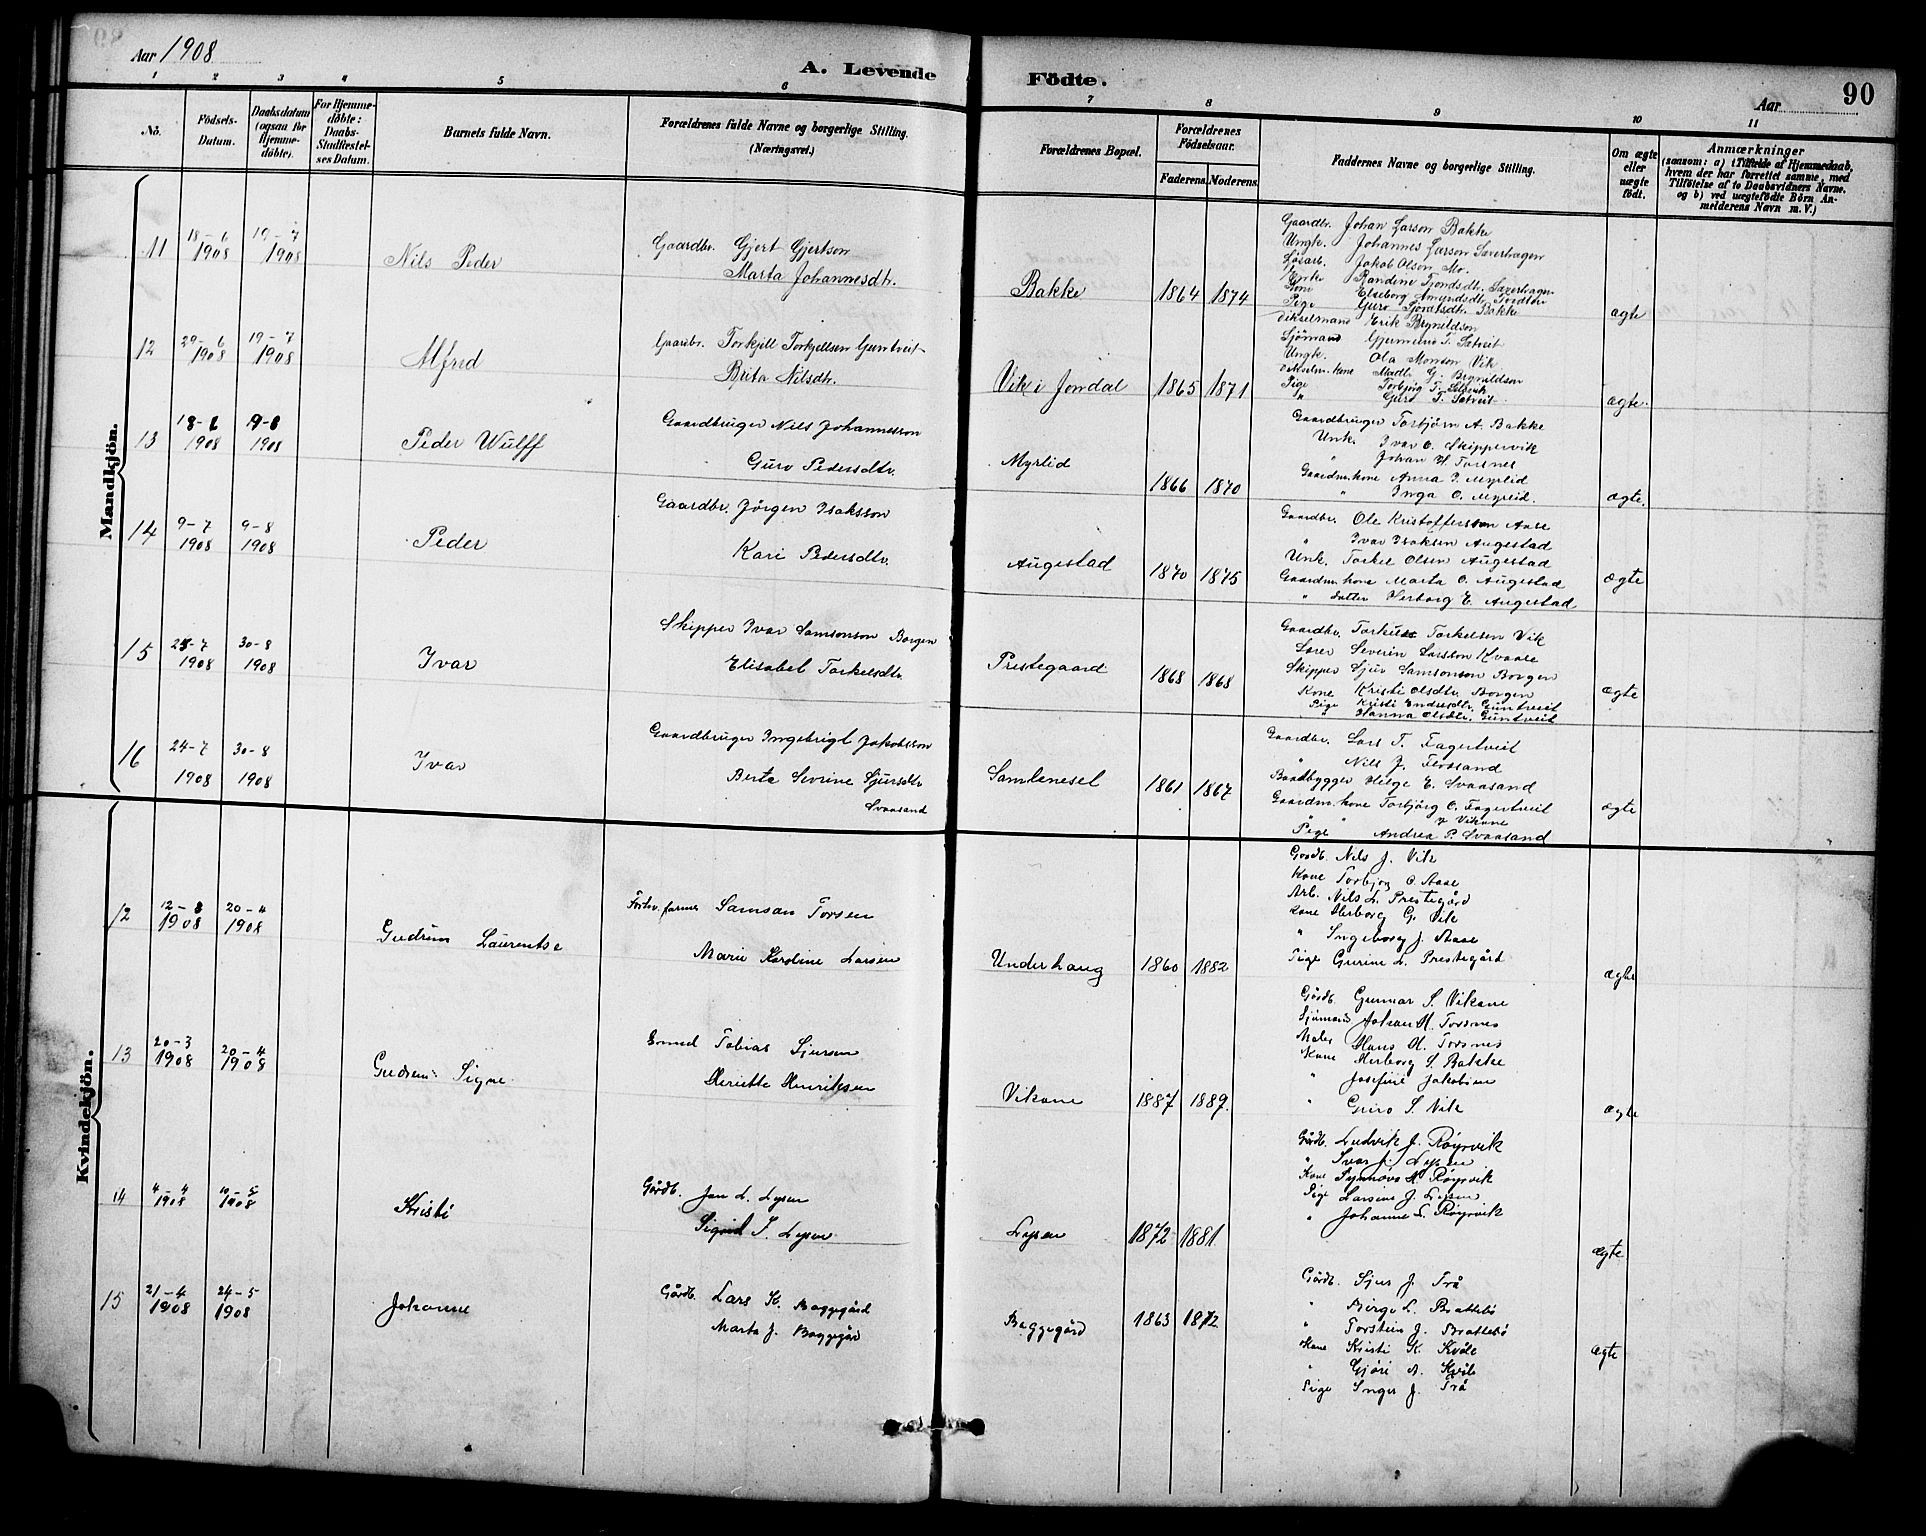 Aar 1908
A. Levende Födte.
Aar
90
1 2 3 4 5 6 7 8 9 10 11
No.
Födsels-Datum.
Daabsdatum (ogsaa for Hjemme-döbte).
For Hjemme-döbte: Daabs-Stadfæstel-ses Datum.
Barnets fulde Navn.
Forældrenes fulde Navne og borgerlige Stilling.
(Næringsvei.)
Forældrenes Bopæl.
Forældrenes Födselsaar.
Faderens. Moderens.
Faddernes Navne og borgerlige Stilling.
Om ægte eller uægte födt.
Anmærkninger
(saasom: a) i Tilfælde af Hjemmedaab,
hvem der har forrettet samme, med
Tilföielse af to Daabsvidners Navne,
og b) ved uægtefödte Börn An-
melderens Navn m. V.)
Mandkjön.
11 18-6 1908 19-7 1908 Nils Peder
Gaardbr. Gjert Gjertson
Marta Johannesdtr.
Bakke 1864 1874
Gaardbr. Johan Larson Bakke
Ungk. Johannes Larson Saxerhagen
Løsarb. Jakob Olson Mo.
Enke Randine Tjondsdtr. Saxerhagen
Kone Elseborg Amundsdtr.
Pige Guro Bakke
ægte
12 29-6 1908 19-7 1908 Alfred
Gaardbr. Torkjell Torkjellsen Guntveit
Brita Nilsdtr.
Vik i Jondal 1865 1871
Erik Brynildson
Sjömand T. Satveit
Ungk. Ola Monson Vik
kone G. Brynildson
Pige Torbjörg T.
" Guro T. Satveit
ægte.
13 18-6 1908 9-8 1908 Peder Wulff
Gaardbruger Nils Johannesson
Guro Pedersdtr.
Myrlid 1866 1870
Gaardbruger Torbjörn A. Bakke
Unk. Ivar O. Skippervik
" Johan H. Torsnes
Gaardm.kone Anna I. Myrlid
" Inga O. Myrlid.
ægte.
14 9-7 1908 9-8 1908 Peder
Gaardbr. Jörgen Isaksson
Kari Pedersdtr.
Augestad 1870 1875
Gaardbr. Ole Kristofferson Aase
" Ivar Isaksen Augestad
Unk. Torkel Olsen Augestad
Gaardm.kone Marta O. Augestad
" datter Herborg E. Augestad
ægte
15 28-7 1908 30-8 1908 Ivar
Skipper Ivar Samsonson Borgen
Elisabet Torkelsdtr.
Prestegaard 1868 1868
Gaardbr. Torkel Torkelsen Vik
Lærer Severin Larsson Kvaale
Skipper Sjur Samsonson Borgen
Kone Kristi Olsdtr. Borgen
Pige Kristi Endresdtr. Guntveit
" Hanna Olsdtr. Guntveit
ægte
16 24-7 1908 30-8 1908 Ivar
Gaardbruger Ingebrigt Jakobsson
Berta Sevrine Sjursdtr.
Svaasand
Samlenesel 1861 1867
Gaardbr. Lars T. Fagertveit
" Nils J. Flotsand
Baadbygger Helge E. Svaasand
Gaardm.kone Torbjörg O. Fagertveit
" " J. Vikane
Pige Andrea P. Svaasand
ægte
Kvindekjön.
12 12-3 1908 20-4 1908 Gudrun Laurentse
Forhv. farmer Samson Torsen
Marie Karoline Larsen
Underhaug 1860 1882
Gardb. Nils J. Vik
Kone Torbjorg O. Aase
Arb. Nils L. Prestegård
Kone Herborg G. Vik
" Ingeborg J. Aase
Pige Gurine L. Prestegård
ægte
13 20-3 1908 20-4 1908 Gudrun Signe
Tobias Sjursen
Henriette Henriksen
Vikane 1887 1889.
Gårdb. Gunnar S. Vikane
Sjømand Johan H. Torsnes
Maler Hans H. Torsnes
Kone Herborg S. Bakke
" Josefine Jakobine
" Guro S. Vik
ægte
14 4-4 1908 10-5 1908 Kristi
Gårdb. Jon L. Lysen
Sigrid I. Lysen
Lysen 1872 1881
Gårdb. Ludvik J. Røyrvik
" Ivar J. Lysen
Kone Synnøva M. Røyrvik
Pige Larsine J. Lysen
" Johanne L. Røyrvik
ægte
15 21-4 1908 24-5 1908 Johanne
Gårdb. Lars K. Baggegård
Marta J. Baggegård
Baggegård 1863 1872
Gårdb. Sjur J. Trå
" Børge L. Brattebø
" Torstein J. Brattebø
Kone Kristi K. Kvåle
" Gjøri A. Kvåle
Pige Inger J. Trå
ægte